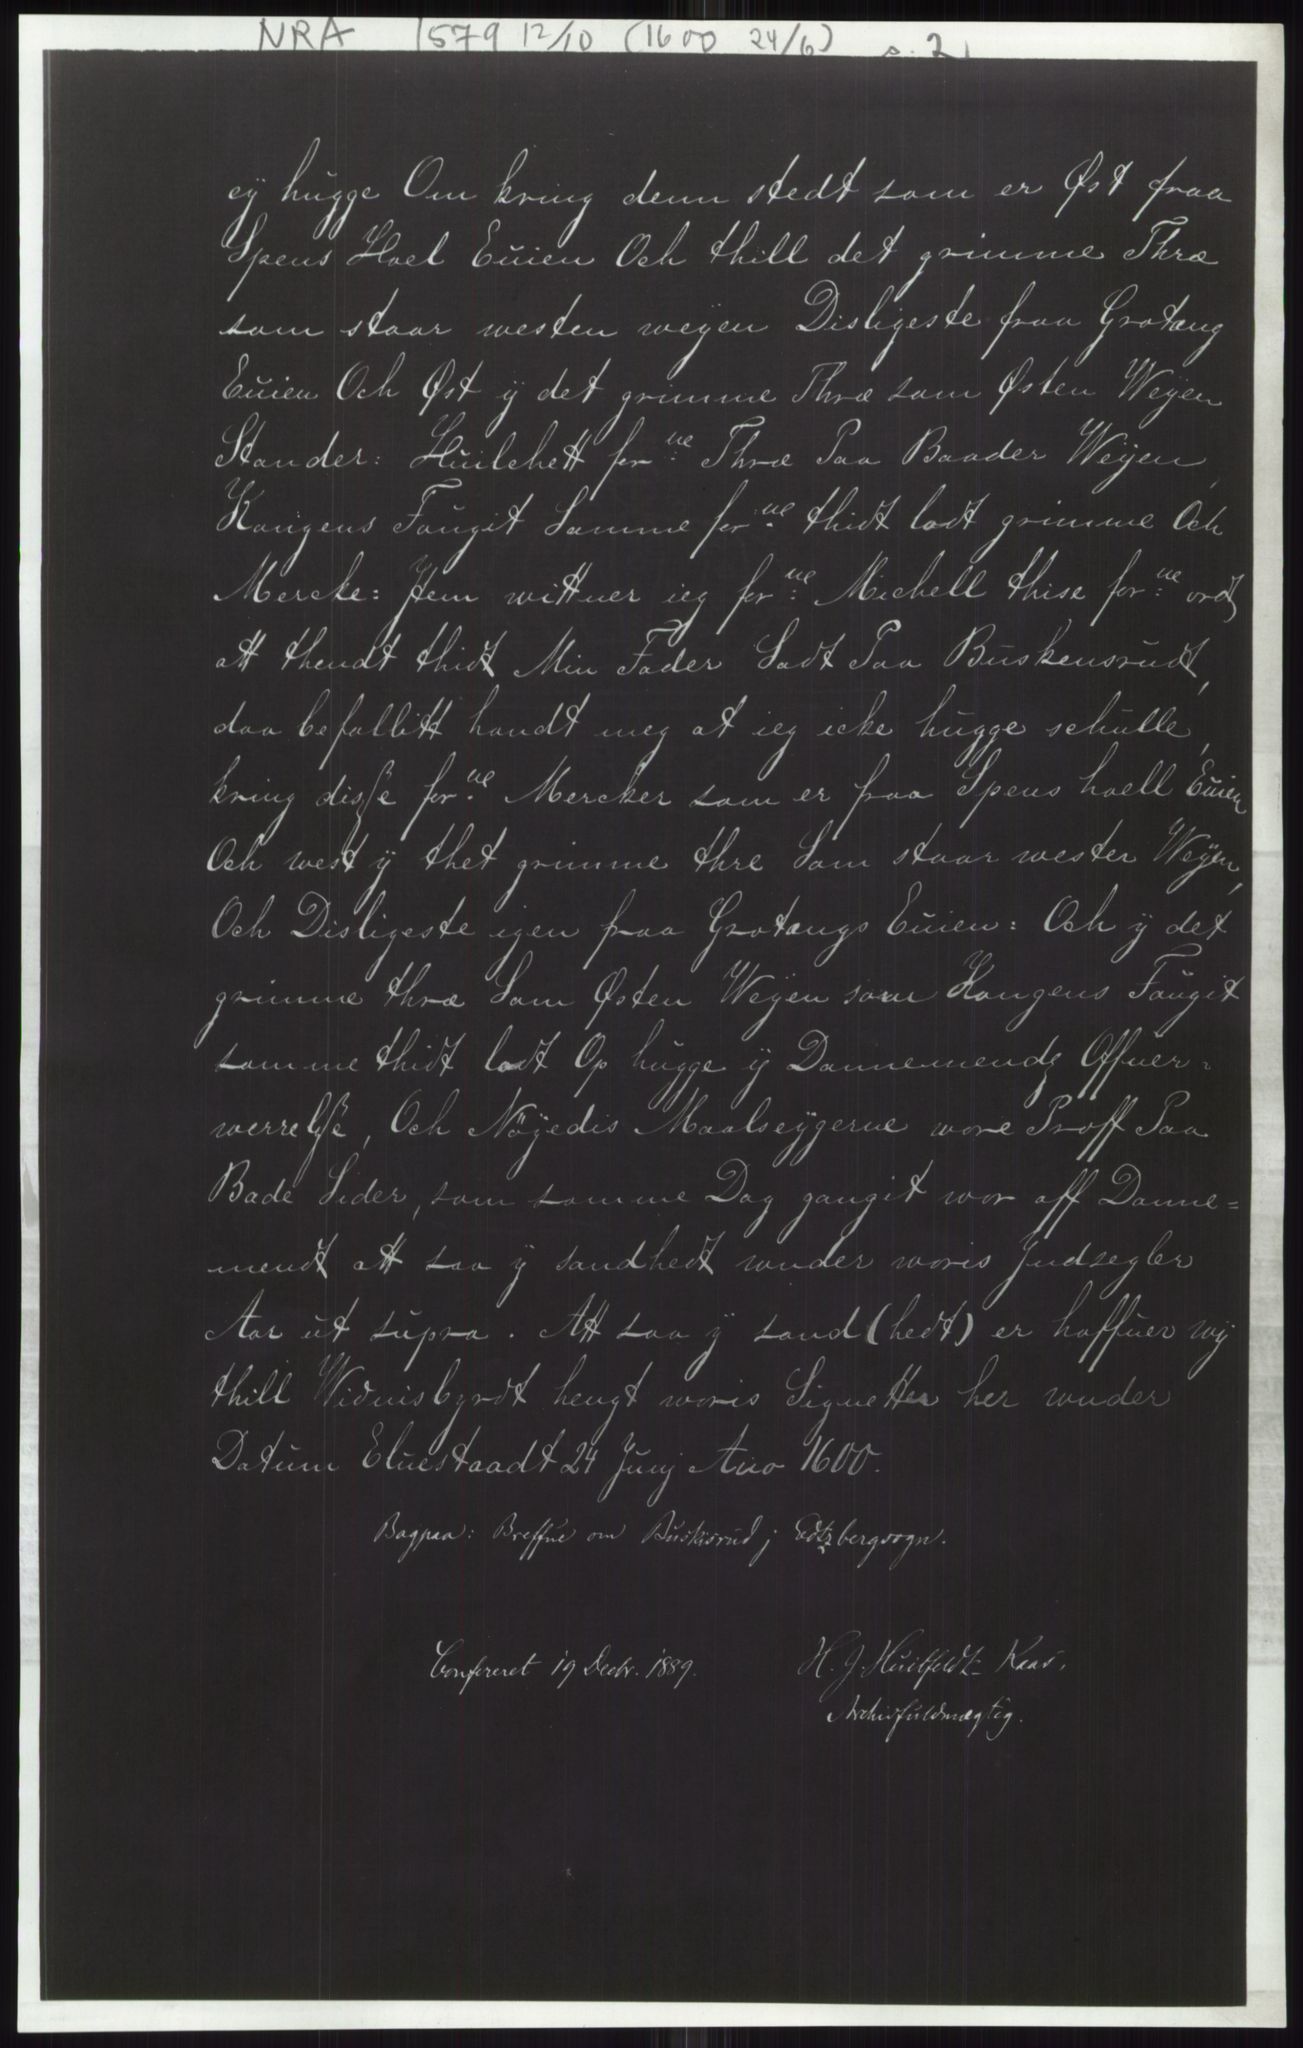 NRA 1579 12/10 (1600 24/6) s. 2
eÿ hugge Om kring denn stedt som er Øst fraa
Spens Hoel Euien Och thill det grimme Thræ
som staar westen weÿen Disligeste fraa Grotang
Euien Och Øst ÿ det grimme Thræ som Østen Weÿen
Stander: Huilchett for:ne Thræ Paa Baader Weÿen,
Kongens Fougit Samme for:ne thidt lodt grimme Och
Mercke: Jtem wittner ieg for:ne Michell thise for:ne ordt
att thendt thidt Min Fader Sadt Paa Buskensrudt,
daa befallitt handt meg at ieg icke hugge schulle,
kring disse for:ne Mercker som er fraa Spens hoell Euien
Och west ÿ thet grimme thre Som staar wester Weÿen,
Och Disligeste igen fraa Grotangs Euien: Och ÿ det
grimme thræ Som Østen Weÿen som Kongens Fougit
samme thidt lodt Op hugge ÿ Dannemends Offuer-
werrelse, Och Nöÿedis Maalseÿgerne wore Proff Paa
Bade Sider, som samme Dag gangit wor aff Danne=
mendt att saa ÿ sandhedt wnder woris Jndsegler
Aar ut supra. Att saa ÿ sand(hedt) er haffuer wÿ
thill Widnisbyrdt hengt woris Signetter her wnder
Datum Eluestaadt 24 Junj Ano 1600.
Bagpaa: Breffue om Buskisrud j Edtzbergsogn.
Confereret 19 Decbr. 1889. H. J. Huitfeldt-Kaas,
Archivfuldmægtig.